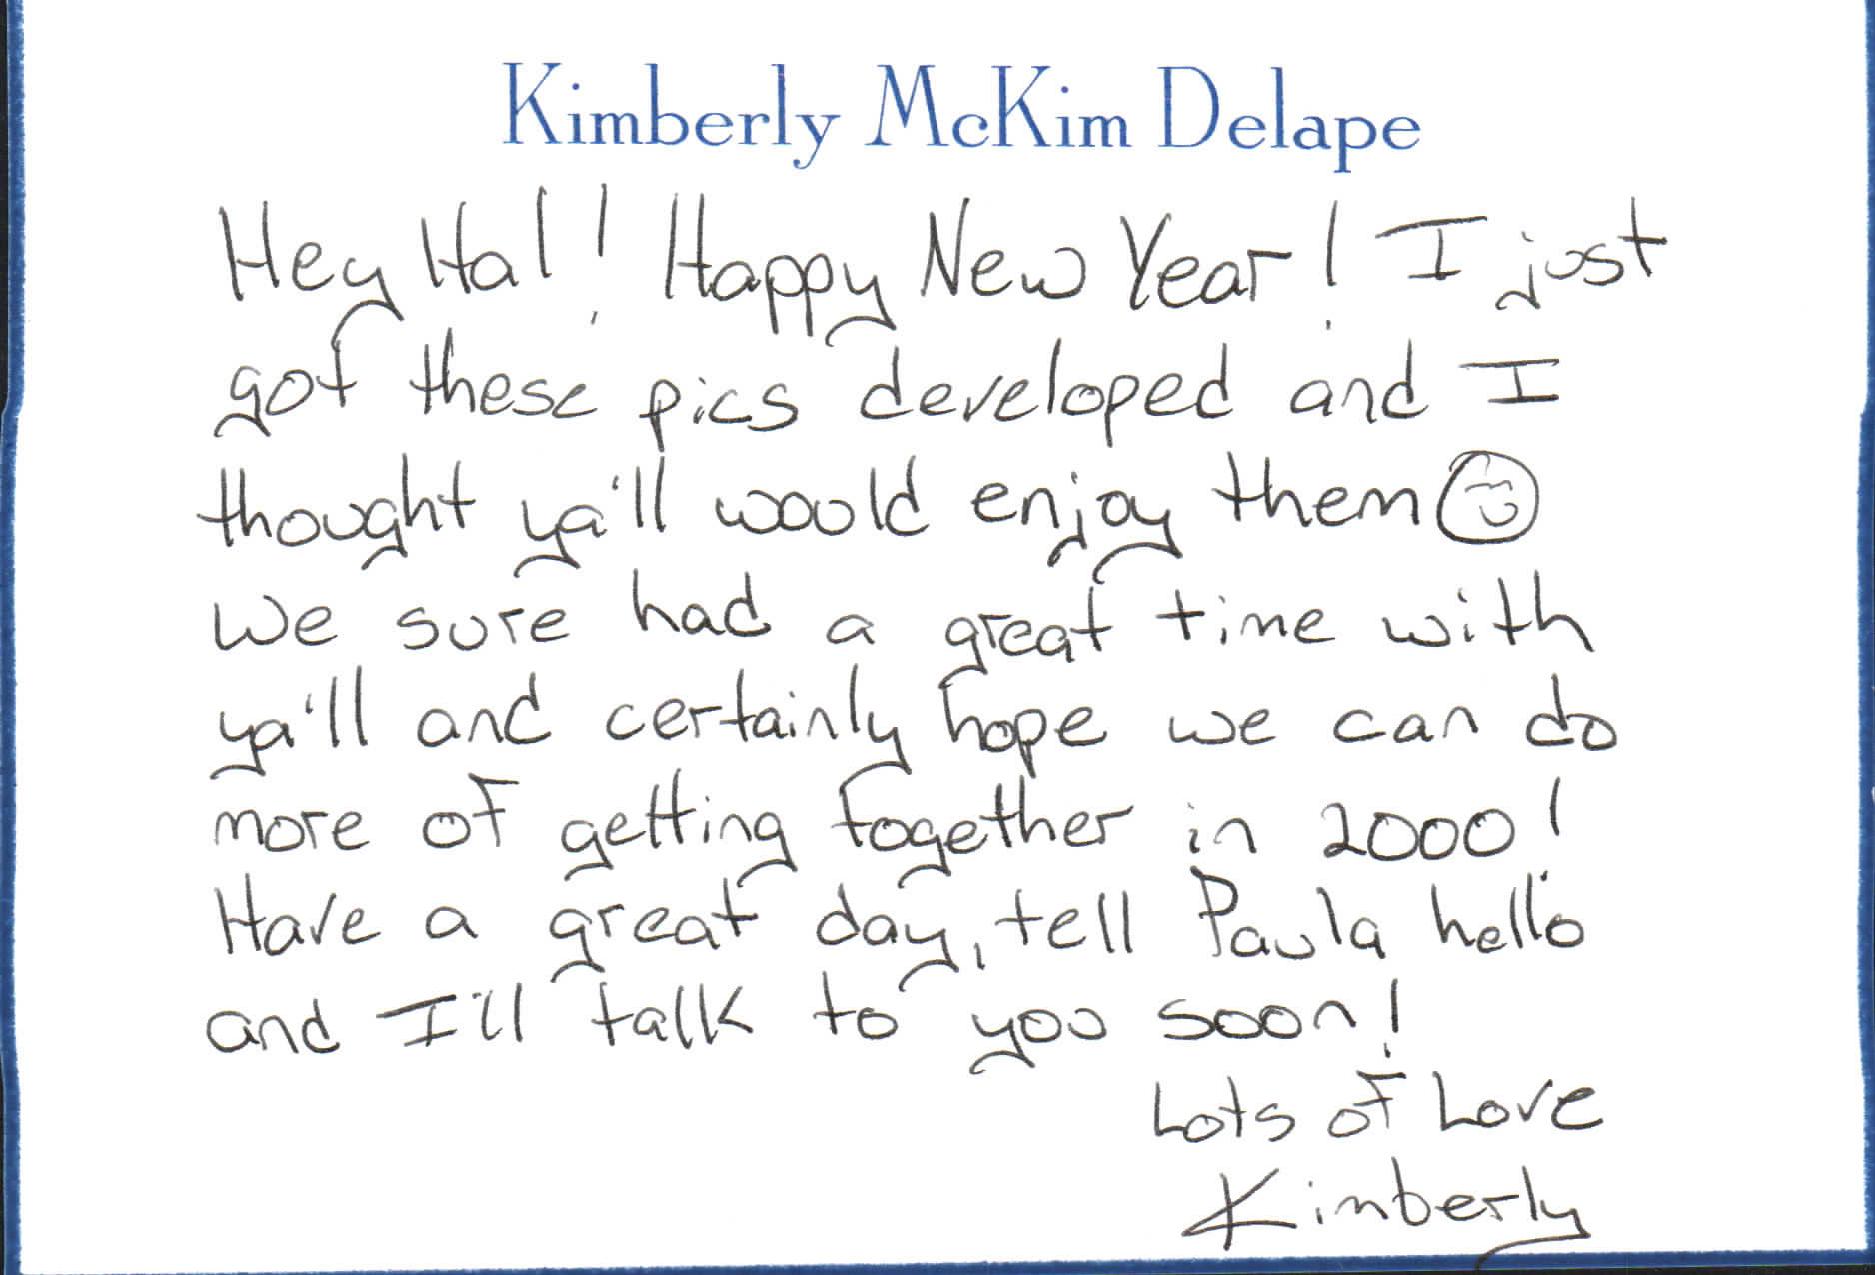 Kimberly McKim Delape
Hey Hal! Happy New Year! I just
got these pics developed and I
thought ya'll would enjoy them
We sure had a great time with
ya'll and certainly hope we can do
more of getting together in 2000!
Have a great day, tell Paula hello
and I'll talk to you soon!
Lots of Love
Kimberly